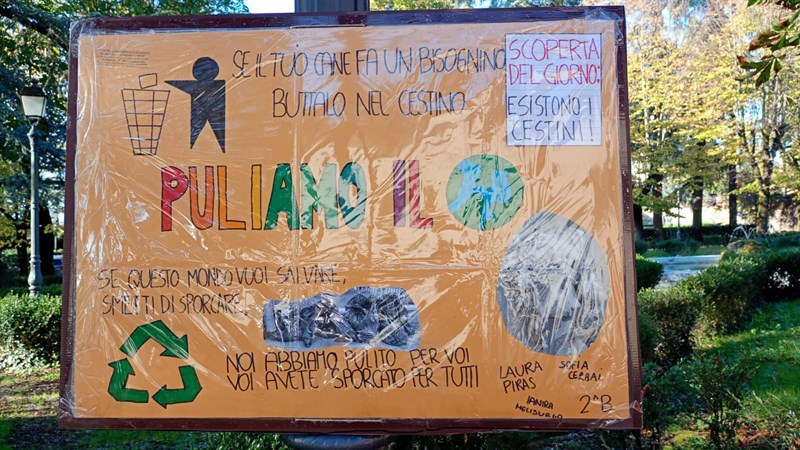 SE IL TUO CANE FA UN BISOGNINO
BUTTALO NEL CESTINO
SCOPERTA
DEL GIORNO:
ESISTONO I
CESTINI!
PULIAMO IL
SE QUESTO MONDO VUOI SALVARE,
SMETTI DI SPORCARE.
NOI ABBIAMO PULITO PER VOI
VOI AVETE SPORCATO PER TUTTI
LAURA
PIRAS
SOFIA
IANIRA
MELISURGO
2^B